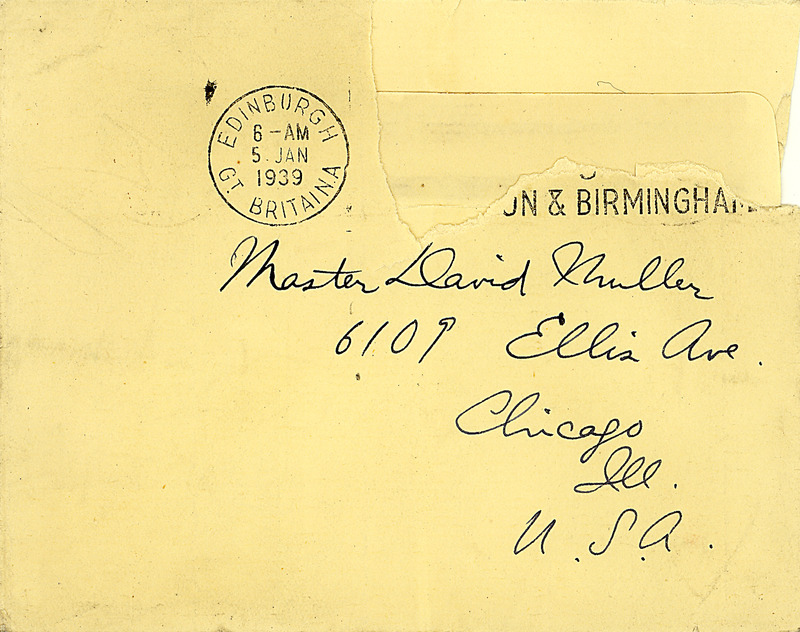 EDINBURGH
6-AM
5 JAN
1939
GT. BRITAIN.A
& BIRMINGHAM
Master David Muller
6109 Ellis Ave.
Chicago
Ill.
U.S.A.